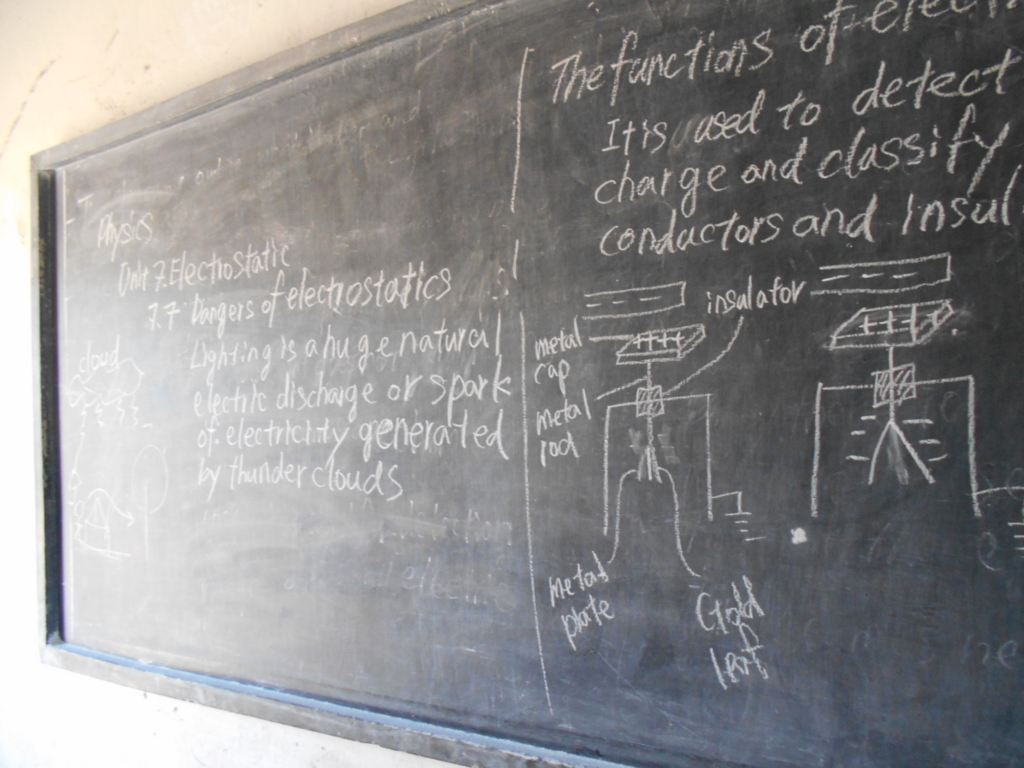 Physics
Unit 7. Electrostatic
7.7 Dangers of electrostatics
Lighting is a huge natural
electric discharge or spark
of electricity generated
by thunder clouds
cloud
The functions of elect
It is used to detect
charge and classify
conductors and insul
insulator
metal
cap
metal
rod
metal
plate
Gold
leaf